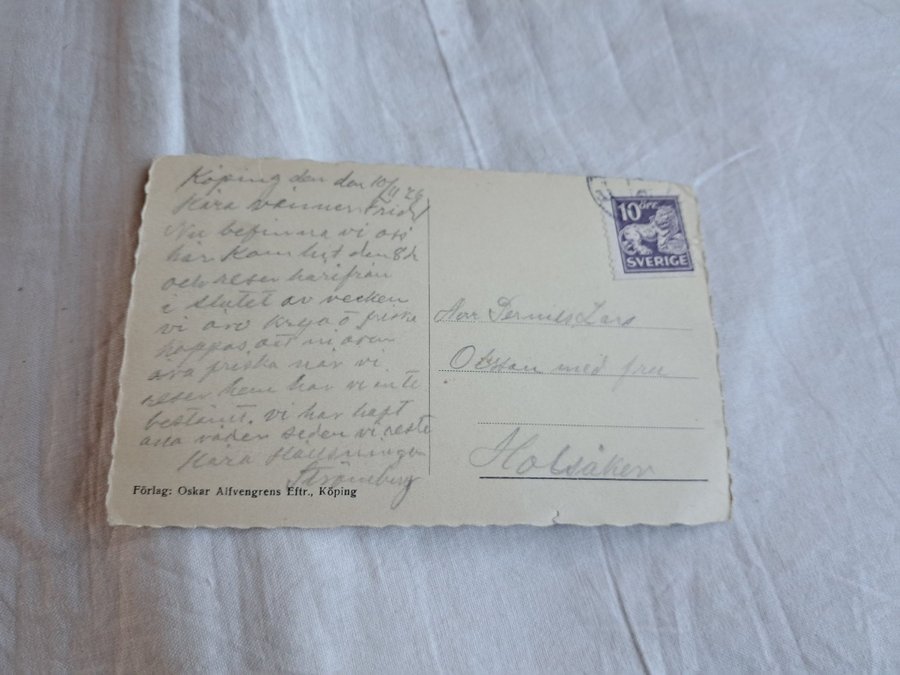 Köping den 10/11 26
Kära vänner Frid!
Nu befinna vi oss
här kom hit den 8de
och reser härifrån
i slutet av veckan
vi äro krya o friska
hoppas att ni även
ära friska när vi
reser hem har vi inte
bestämt. vi har haft
alla väder sedan vi reste
Kära Hälsningar
Strömberg
Förlag: Oskar Alfvengrens Eftr., Köping
10 öre
SVERIGE
Lars
Olsson med fru
Holsåker